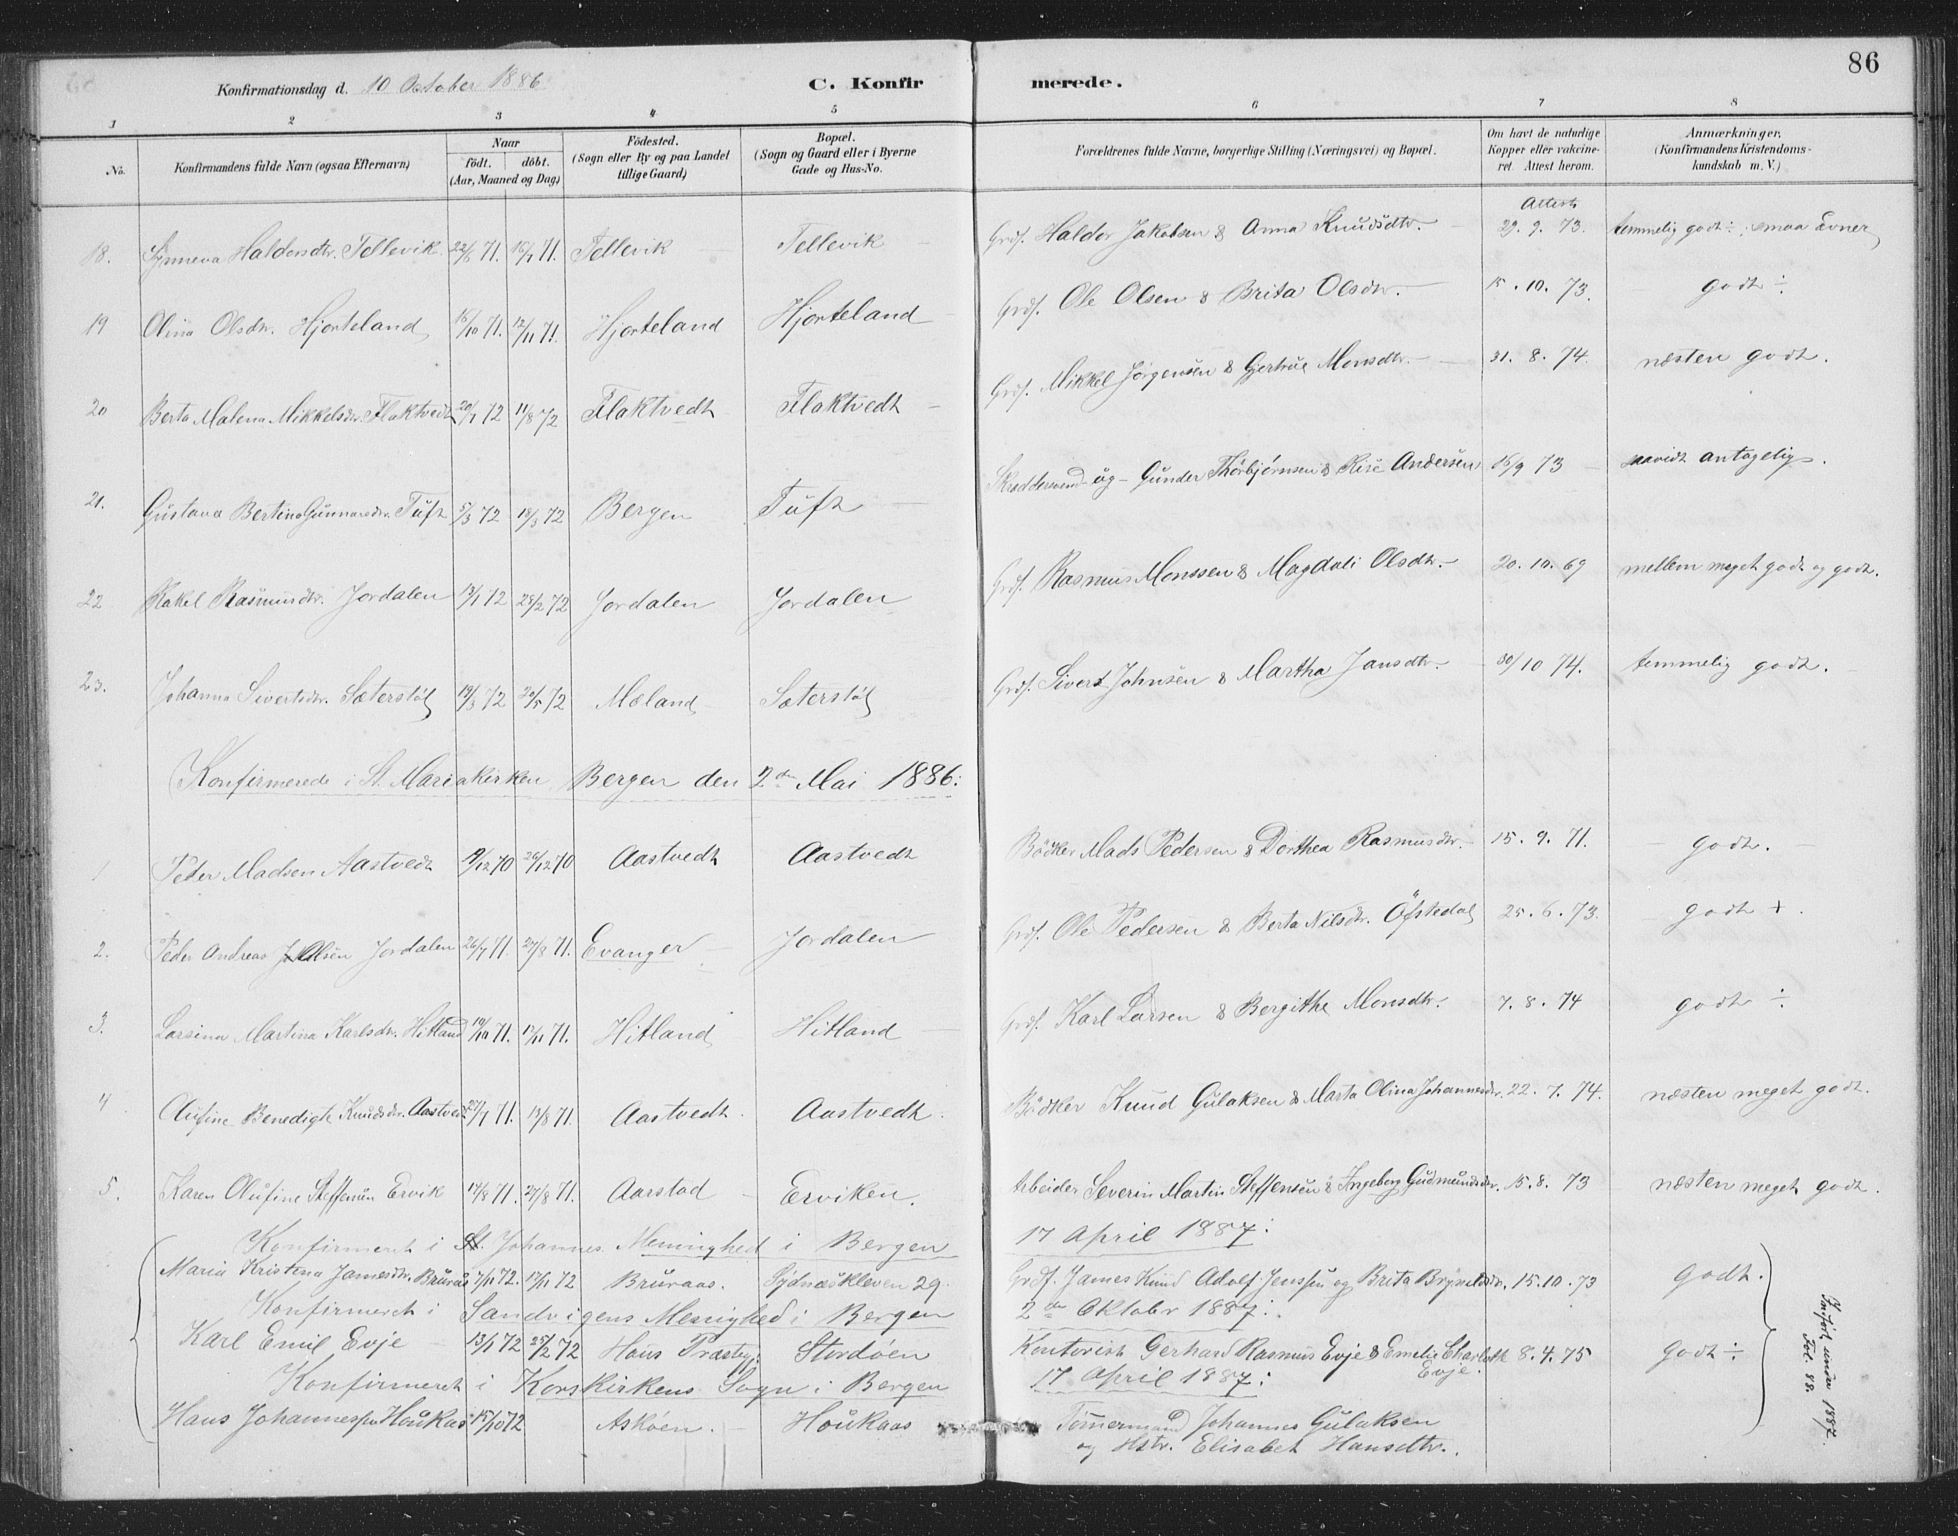 86
Konfirmationsdag d. 10 October 1886 C. Konfirmerede.
1 2 3 4 5 6 7 8
No. Konfirmandens fulde Navn (ogsaa Efternavn) Naar födt. döbt. (Aar, Maaned og Dag) Födested. (Sogn eller By og paa Landet tillige Gaard) Bopæl. (Sogn og Gaard eller i Byerne Gade og Hus-No. Forældrenes fulde Navne, borgerlige Stilling (Næringsvei) og Bopæl. Om havt de naturlige Kopper eller vakcineret. Attest herom. Anmærkninger. (Konfirmandens Kristendomskundskab m. V.)
Attest
18. Synneva Haldorsdtr. Tellevik 22/6 71. 16/7 71. Tellevik Tellevik Grdf. Haldor Jakobsen & Anna Knudsdtr. 29. 9. 73. temmelig godt ÷, smaa Evner
19 Olina Olsdtr. Hjorteland 16/10 71. 12/11 71. Hjorteland Hjorteland Grdf. Ole Olsen & Brita Olsdtr. 15. 10. 73. godt ÷
20 Berta Malena Mikkelsdtr. Flaktvedt 20/7 72 11/8 72 Flaktvedt Flaktvedt Grdf. Mikkel Jörgensen & Gjertrue Monsdtr. 31. 8. 74. næsten godt.
21. Gustava Bertine Gunnarsdtr. Tuft 5/3 72 18/3 72 Bergen Tuft Skræddersvend og Gunder Thorbjørnsen & Lise Andersen 16/9 73 saavidt antagelig.
22 Rakel Rasmusdtr. Jordalen 13/1 72 25/2 72 Jordalen Jordalen Grdf. Rasmus Monssen & Magdali Olsdtr. 20. 10. 69 mellem meget godt og godt.
23. Johanna Sivertsdtr. Sæterstøl 19/3 72 20/5 72 Mæland Sæterstøl Grdf. Sivert Johnsen & Martha Jansdtr. 30/10 74. temmelig godt.
Konfirmerede i St. Mariakirken Bergen den 2den Mai 1886:
1 Peder Madsen Aastvedt 9/12 70 26/12 70 Aastvedt Aastvedt Bödker Mads Pedersen & Dorthea Rasmusdtr. 15. 9. 71. godt.
2. Peder Andreas Olsen Jordalen 26/7 71. 27/8 71. Evanger Jordalen Grdf. Ole Pedersen & Berta Nilsdtr. Öfstedal 25. 6. 73. godt +.
3. Larsina Martina Karlsdtr. Hitland 19/10 71. 12/11 71. Hitland Hitland Grdf. Karl Larsen & Bergithe Monsdtr. 7. 8. 74 godt ÷
4 Olufine Benedigte Knudsdtr. Aastvedt 27/7 71. 13/8 71. Aastvedt. Aastvedt. Bödker Knud Gulaksen & Marta Olina Johannesdtr. 22. 7. 74. næsten meget godt.
5. Karen Olufine Steffensen Ervik 14/8 71. 27/8 71. Aarstad Erviken. Arbeider Severin Martin Steffensen & Ingeborg Gudmundsdtr. 15. 8. 73 næsten meget godt.
Konfirmeret i St. Johannes Menighed i Bergen 17 April 1887:
Maria Kristina Jamesdtr. Bruraas 7/11 72. 17/11 72 Bruraas. Sydnæskleven 29. Grdf. James Knud Adolf Jenssen og Brita Brynildsdtr. 15. 10. 73 godt.
Konfirmeret i Sandvigens Menighed i Bergen 2den Oktober 1887:
Karl Emil Evje 13/1 72 25/2 72 Haus Præstegj. Stordøen Kontorist Gerhard Rasmus Evje & Emelie Charlotte Evje. 8. 4. 75 godt ÷
Konfirmeret i Korskirkens Sogn i Bergen 17 April 1887:
Hans Johannessen Haukaas 15/10 72 Askøen. Houkaas Tømmermand Johannes Gulaksen
og Hstr. Elisabet Hansdtr.
Indført under 1887.
Fol. 88.